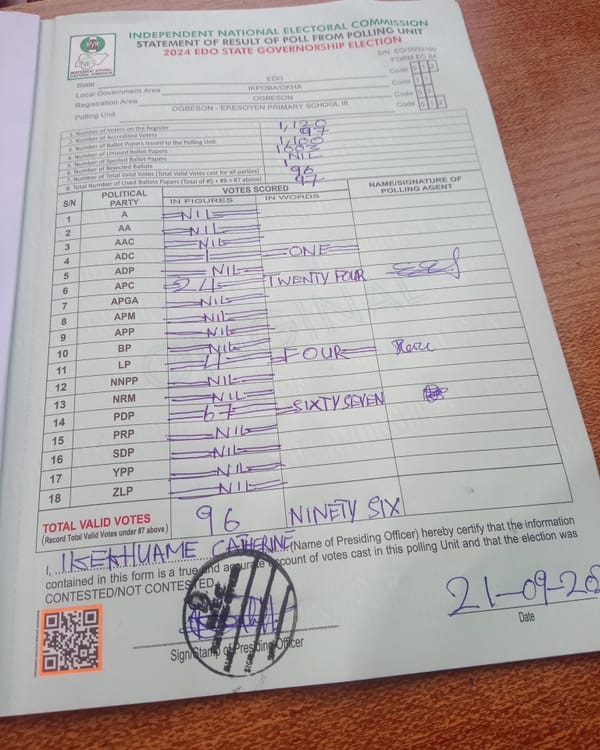 INDEPENDENT NATIONAL ELECTORAL COMMISSION
STATEMENT OF RESULT OF POLL FROM POLLING UNIT
2024 EDO STATE GOVERNORSHIP ELECTION
INEC
INDEPENDENT NATIONAL ELECTORAL COMMISSION
FORM EC 8A
State EDO Code 1 2
Local Government Area IKPOBA/OKHA Code
Registration Area OGBESON Code
Polling Unit OGBESON - ERESOYEN PRIMARY SCHOOL III Code 0 1 2
1. Number of Voters on the Register 1,120
2. Number of Accredited Voters 97
3. Number of Ballot Papers Issued to the Polling Unit 1,100
4. Number of Unused Ballot Papers 1,003
5. Number of Spoiled Ballot Papers NIL
6. Number of Rejected Ballots 1
7. Number of Total Valid Votes (Total Valid Votes cast for all parties) 96
8. Total Number of Used Ballots Papers (Total of #5 + #6 + #7 above) 97
S/N POLITICAL PARTY VOTES SCORED NAME/SIGNATURE OF POLLING AGENT
IN FIGURES IN WORDS
1 A NIL
2 AA NIL
3 AAC NIL
4 ADC 1 ONE
5 ADP NIL
6 APC 24 TWENTY FOUR
7 APGA NIL
8 APM NIL
9 APP NIL
10 BP NIL
11 LP 4 FOUR
12 NNPP NIL
13 NRM NIL
14 PDP 67 SIXTY SEVEN
15 PRP NIL
16 SDP NIL
17 YPP NIL
18 ZLP NIL
TOTAL VALID VOTES 96 NINETY SIX
(Record Total Valid Votes under #7 above)
I, IKEAHUAME CATHERINE (Name of Presiding Officer) hereby certify that the information
contained in this form is a true and accurate account of votes cast in this polling Unit and that the election was
CONTESTED/NOT CONTESTED.
21-09-202
Sign/Stamp of Presiding Officer Date